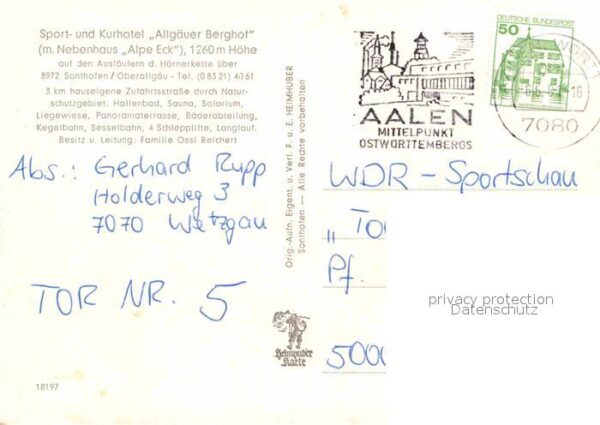 Sport- und Kurhotel „Allgäuer Berghof"
(m. Nebenhaus „Alpe Eck"), 1260 m Höhe
auf den Ausläufern d. Hörnerkette über
8972 Sonthofen / Oberallgäu - Tel. (0 83 21) 40 61
3 km hauseigene Zufahrtsstraße durch Natur-
schutzgebiet. Hallenbad, Sauna, Solarium,
Liegewiese, Panoramaterrasse, Bäderabteilung,
Kegelbahn, Sesselbahn, 4 Schlepplifte, Langlauf.
Besitz u. Leitung: Familie Ossi Reichert
Abs.: Gerhard Rupp
Holderweg 3
7070 Wetzgau
TOR NR. 5
18197
Orig.-Aufn. Eigent. u. Verl. F. u. E. HEIMHUBER
Sonthofen — Alle Rechte vorbehalten
Heimhuber
Karte
AALEN
MITTELPUNKT
OSTWÜRTTEMBERGS
DEUTSCHE BUNDESPOST
50
7080
WDR - Sportschau
„ TO
Pf.
5000
privacy protection
Datenschutz